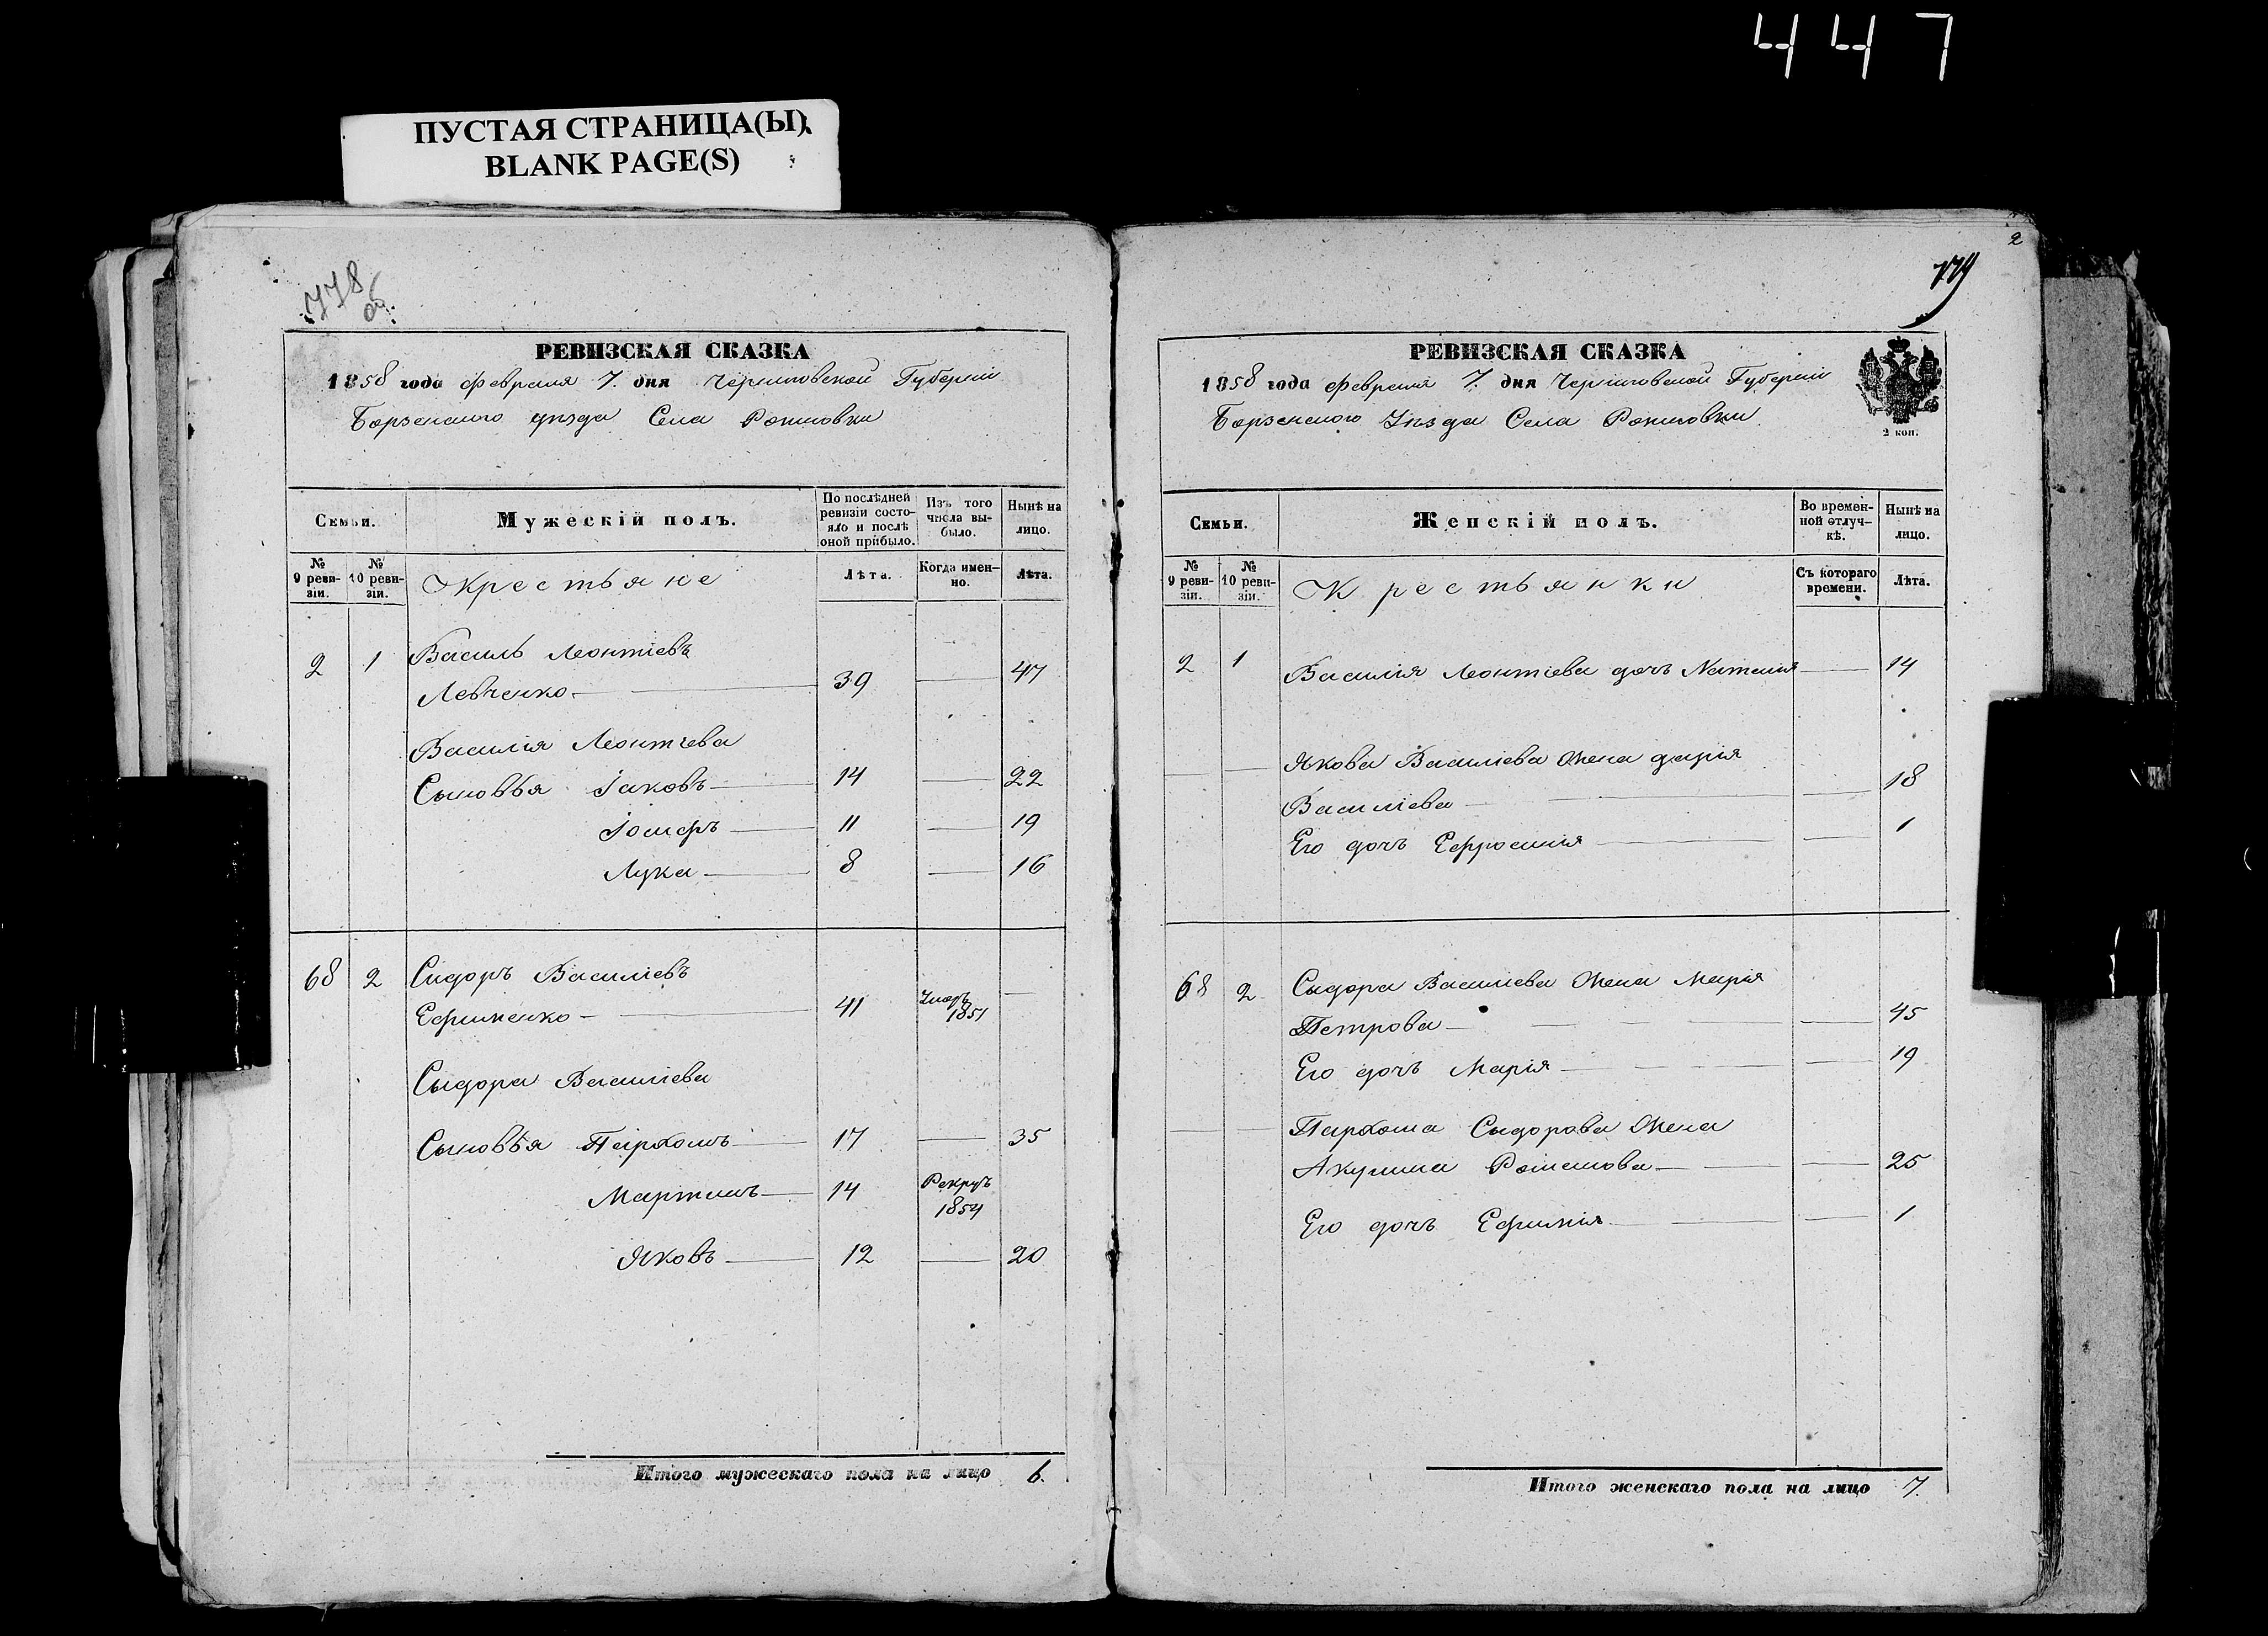 447
ПУСТАЯ СТРАНИЦА(Ы)
BLANK PAGE(S)
778
об.
РЕВИЗСКАЯ СКАЗКА
1858 года февраля 7. дня Черниговской Губернии
Борзенского уезда Села Рожновки
Семьи.
Мужескій полъ.
По послѣдней ревизіи состояло и послѣ оной прибыло.
Изъ того числа выбыло.
Нынѣ на лицо.
№ 9 ревизіи.
№ 10 ревизіи.
Крестьяне
Лѣта.
Когда именно.
Лѣта.
2 1 Василь Леонтіевъ
Левченко 39 47
Василія Леонтіева
Сыновья Іаковъ 14 22
Іосифъ 11 19
Лука 8 16
68 2 Сидоръ Василіевъ
Ефименко 41 Умеръ 1851
Сыдора Василіева
Сыновья Пархомъ 17 35
Мартинъ 14 Рекрутъ 1854
Яковъ 12 20
Итого мужескаго пола на лицо 6.
2
779
РЕВИЗСКАЯ СКАЗКА
1858 года февраля 7. дня Черниговской Губерніи
Борзенского Уезда Села Рожновки
2 коп.
Семьи.
Женскій полъ.
Во временной отлучкѣ.
Нынѣ на лицо.
№ 9 ревизіи.
№ 10 ревизіи.
Крестьянки
Съ котораго времени.
Лѣта.
2 1 Василія Леонтіева дочь Наталія 14
Якова Василіева Жена Дарія
Василіева 18
Его дочь Ефросинія 1
68 2 Сыдора Василіева Жена Марія
Петрова 45
Его дочь Марія 19
Пархома Сыдорова Жена
Акулина 25
Его дочь Ефимія 1
Итого женскаго пола на лицо 7.